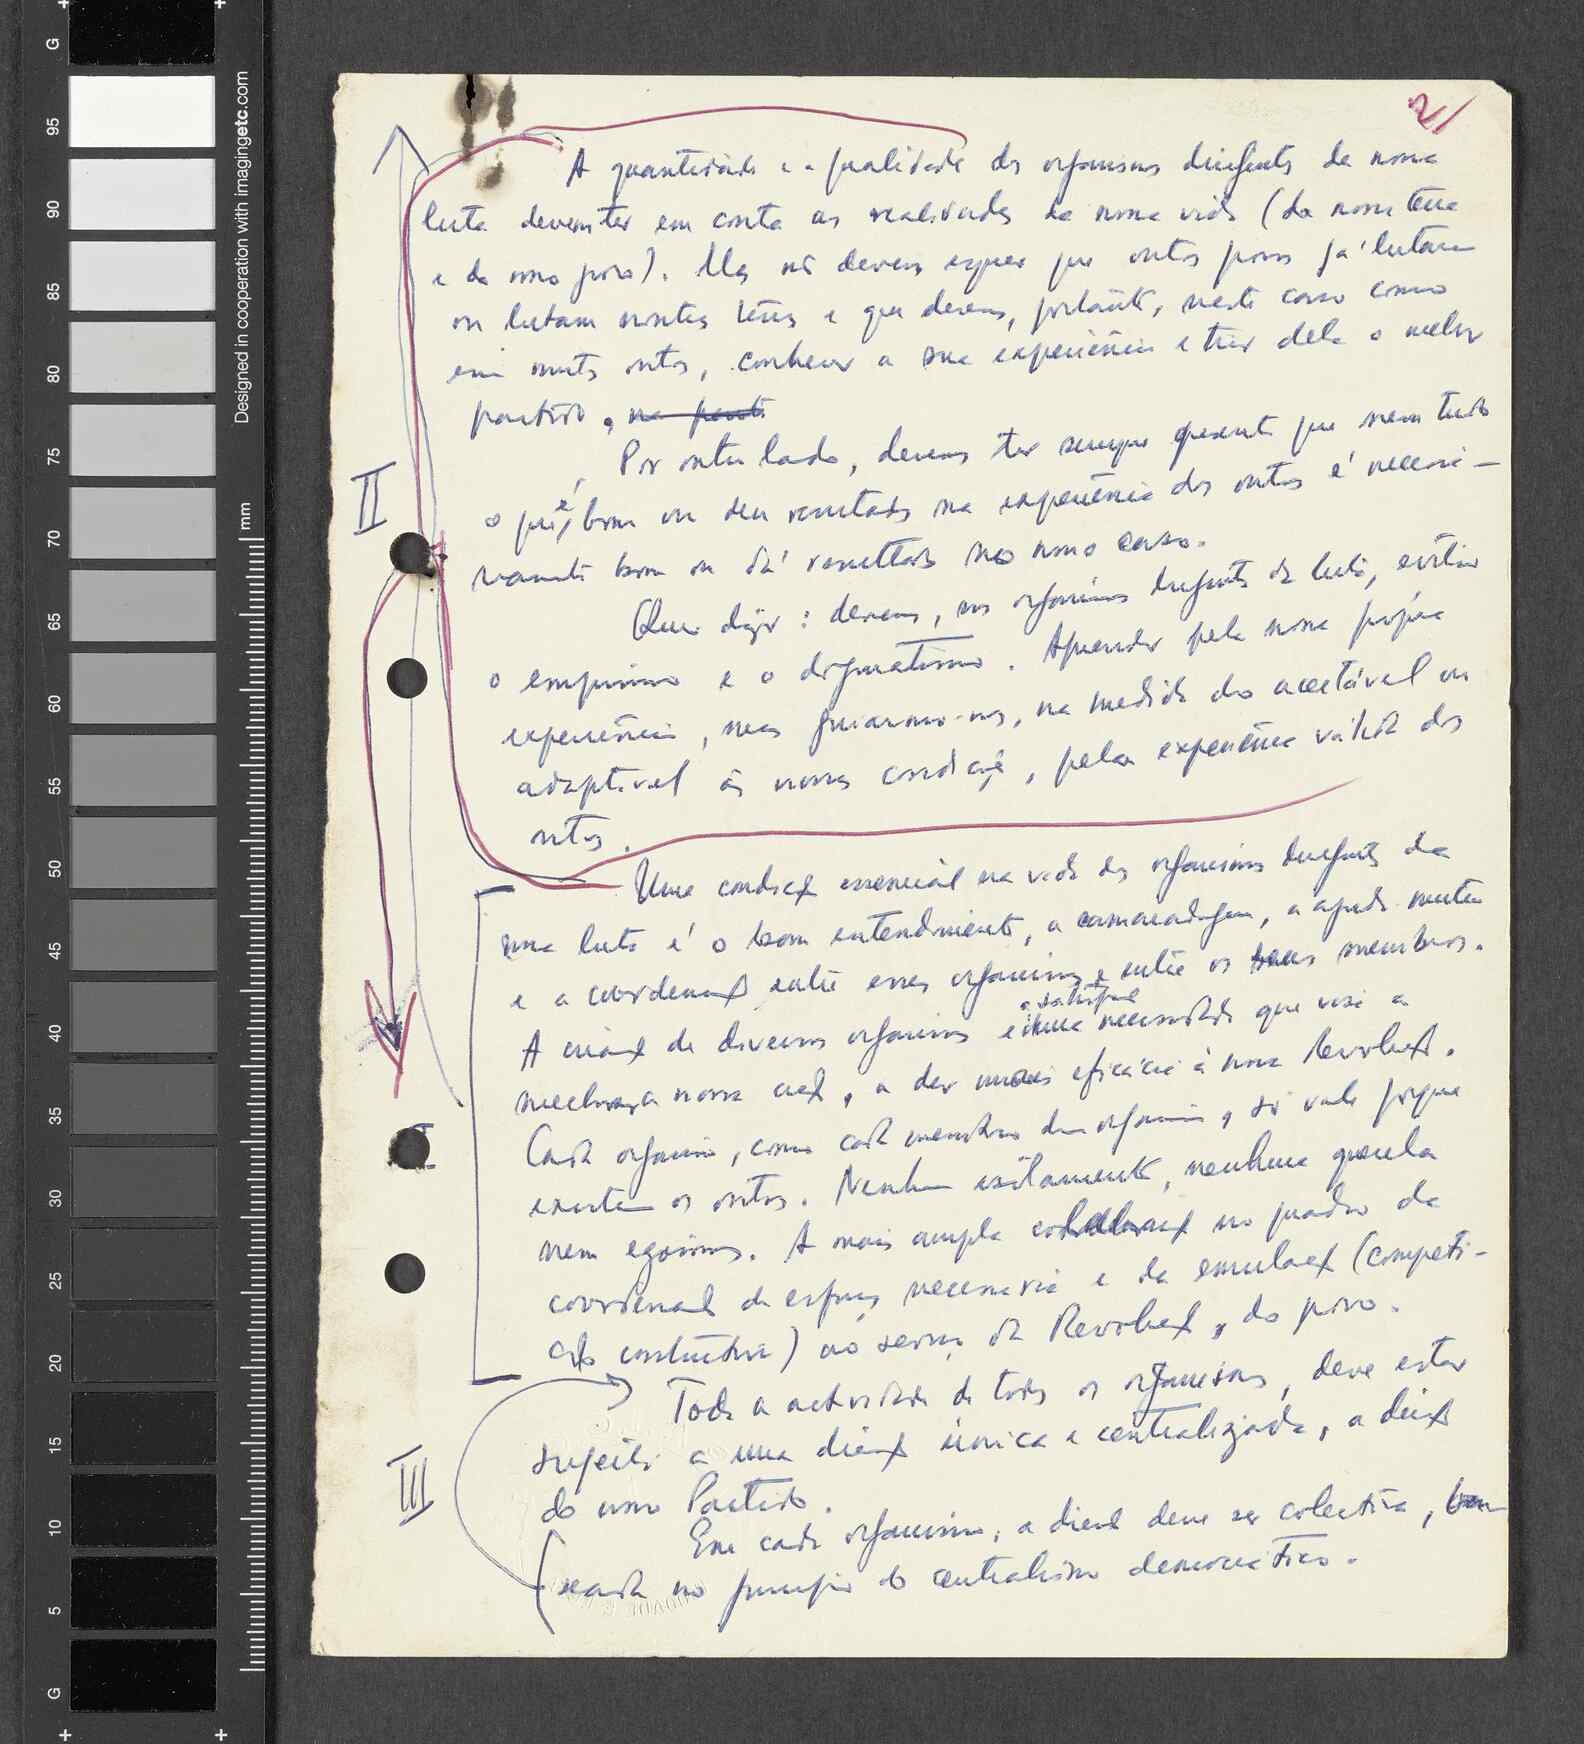 2/
A quantidade e a qualidade dos organismos dirigentes da nossa
luta devem ter em conta as realidades da nossa vida (da nossa terra
e do nosso povo). Mas não devemos esquecer que outros povos já lutaram
ou lutam noutras terras e que devemos, portanto, neste caso como
em muitos outros, conhecer a sua experiência e tirar dela o melhor
partido, na
Por outro lado, devemos ter sempre presente que nem tudo
o que é bom ou deu resultados na experiência dos outros é necessa-
riamente bom ou dá resultados no nosso caso.
II
Quer dizer: devemos, nos organismos dirigentes da luta, evitar
o empirismo e o dogmatismo. Aprender pela nossa própria
experiência, mas guiarmo-nos, na medida do aceitável ou
adaptável às nossas condições, pela experiência válida dos
outros.
Uma condição essencial na vida dos organismos dirigentes da
nossa luta é o bom entendimento, a camaradagem, a ajuda mútua
e a coordenação entre esses organismos e entre os seus membros.
A criação de diversos organismos é uma necessidade que visa a
melhorar a nossa acção, a dar mais eficácia à nossa Revolução.
Cada organismo, como cada membro dum organismo, só vale porque
existem os outros. Nenhum isolamento, nenhuma querela
nem egoísmos. A mais ampla colaboração no quadro da
coordenação de esforços necessária e da emulação (competi-
ção construtiva) ao serviço da Revolução, do povo.
Toda a actividade de todos os organismos, deve estar
sujeita a uma direcção única e centralizada, a direcção
do nosso Partido.
III
Em cada organismo, a direcção deve ser colectiva,
seada no princípio do centralismo democrático.
G
95
90
85
80
75
70
65
60
55
50
45
40
35
30
25
20
15
10
5
G
mm
Designed in cooperation with imagingetc.com